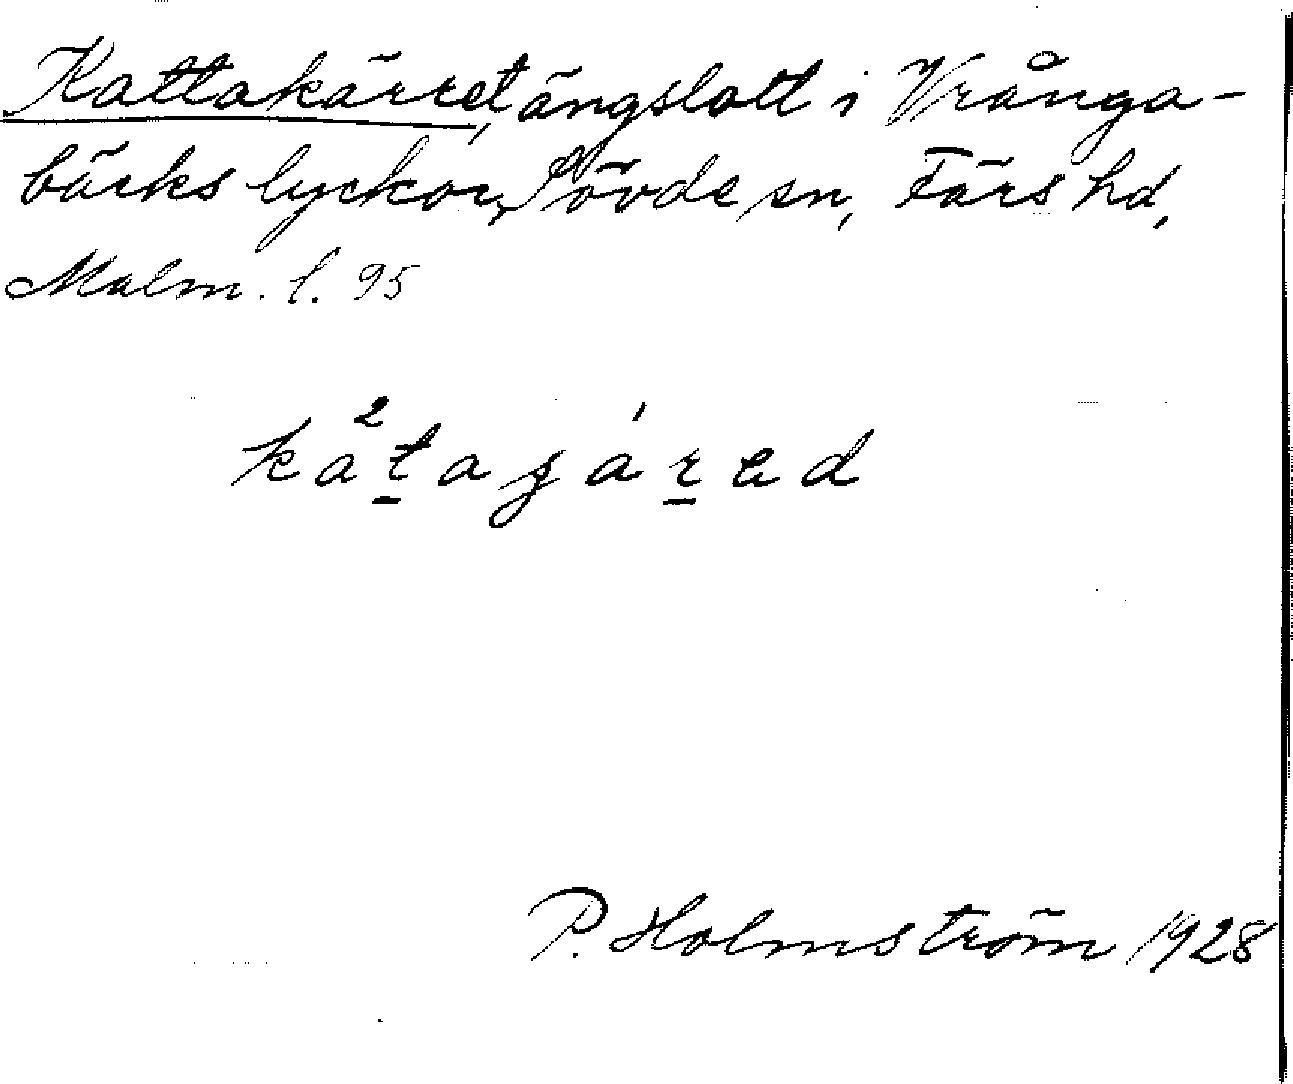 Kattakärret, ängslott i Vrånga-
bäcks lyckor, Sövde sn, Färs hd,
Malm. l. 95
P. Holmström 1928